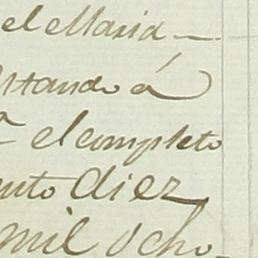 el Maria-
estando á
el completo
ento diez
mil ocho-